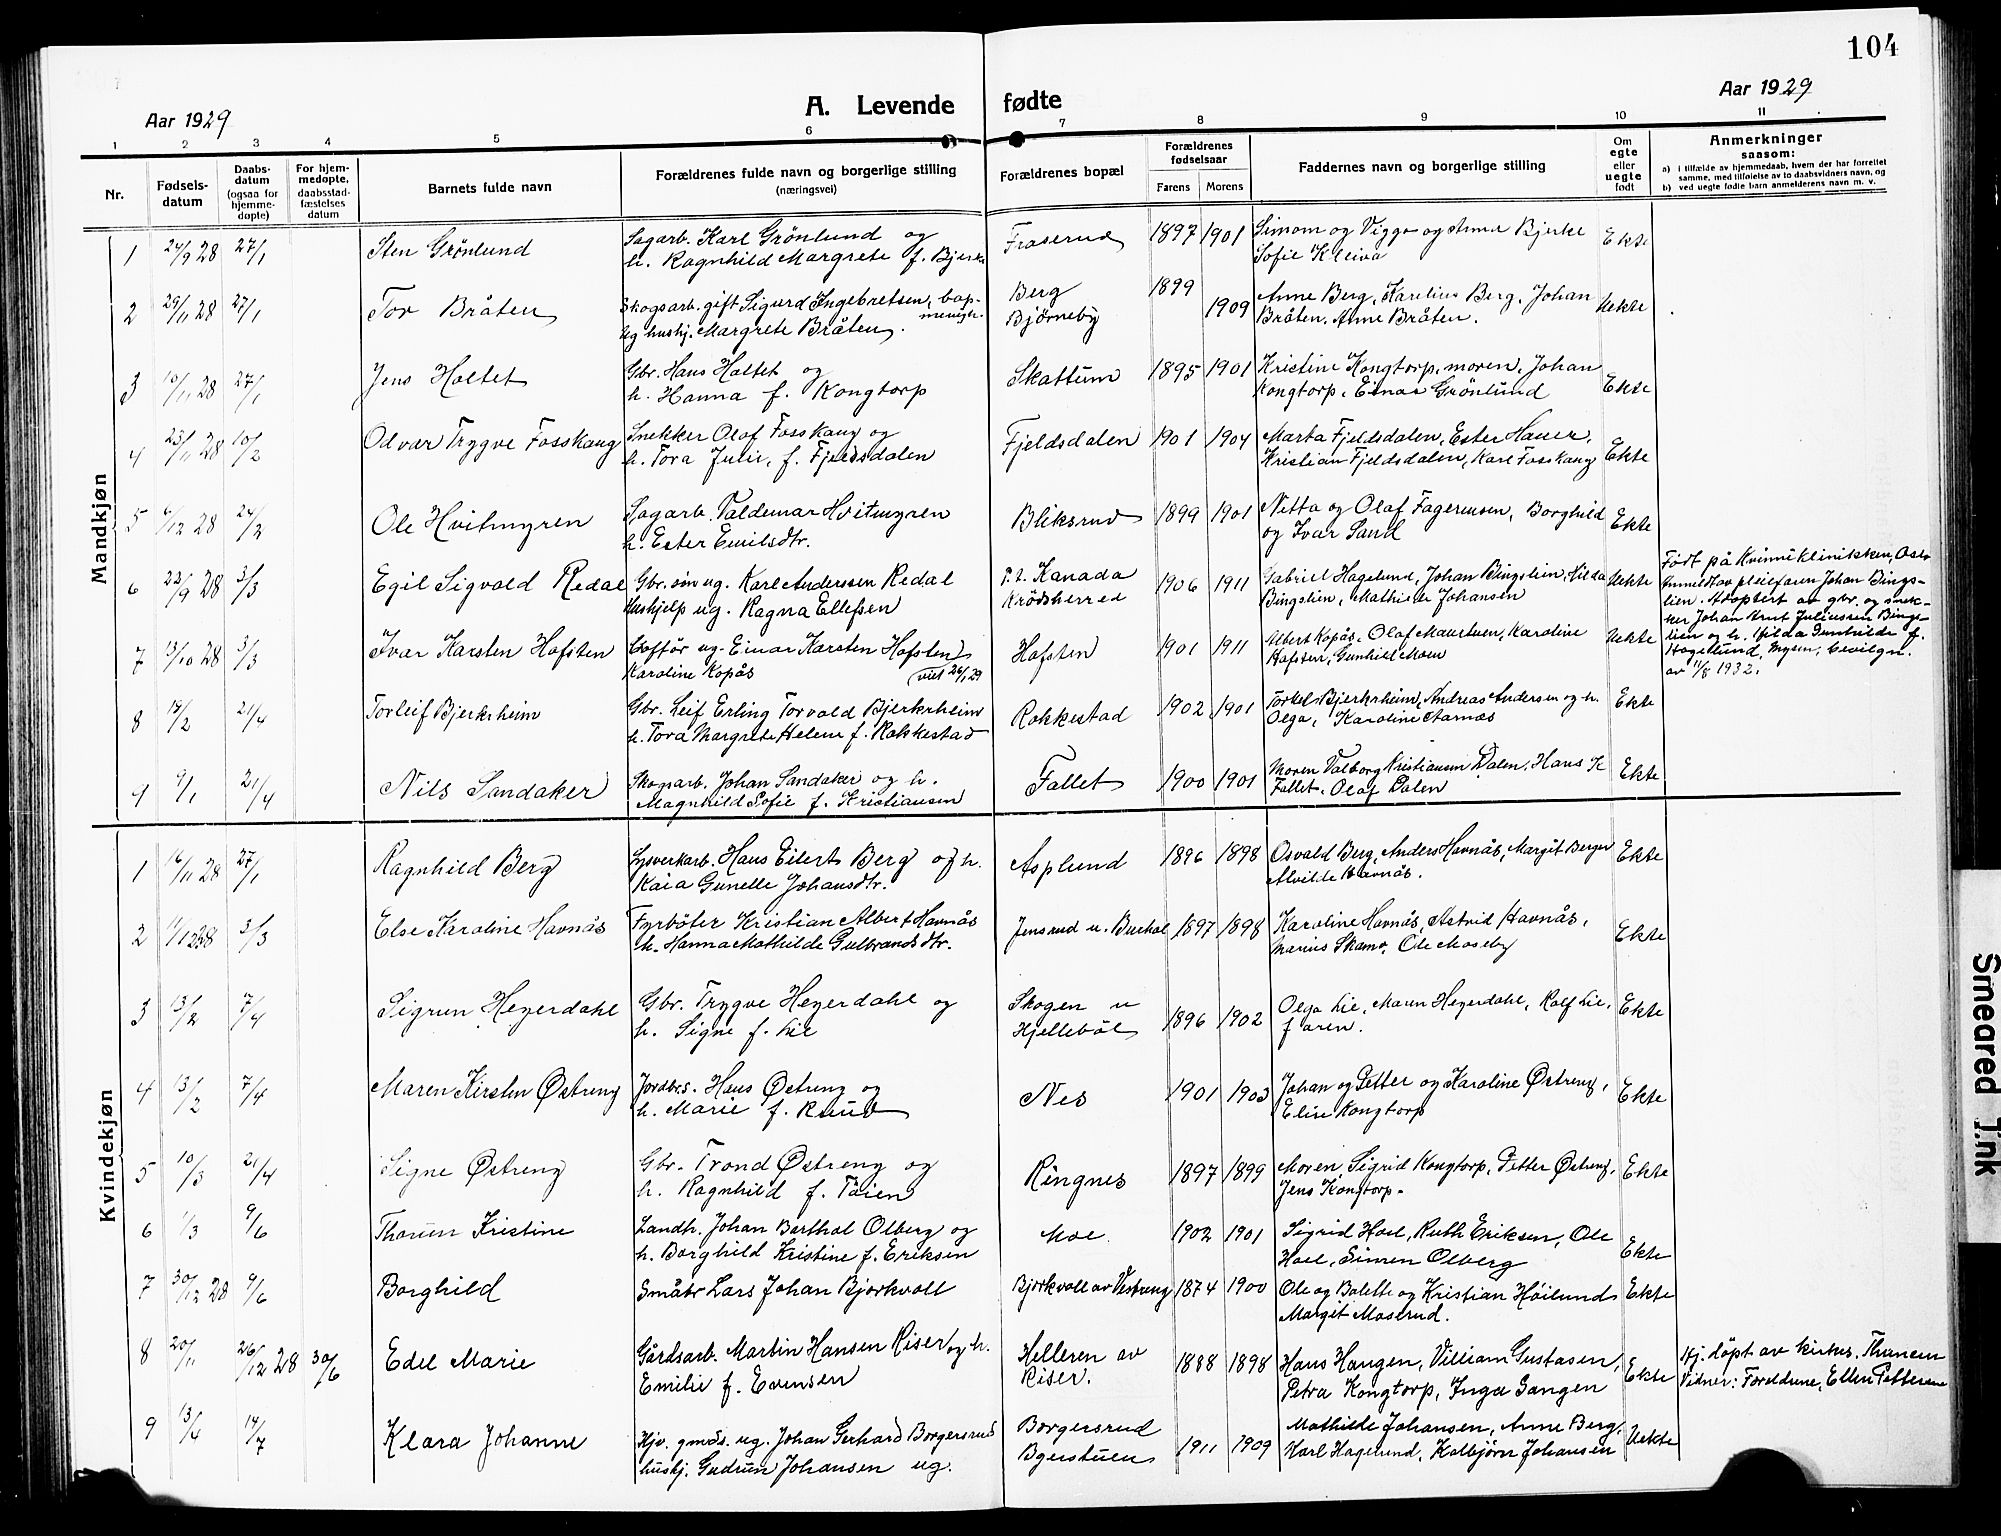 104
Aar 1929
A. Levende fødte
Aar 1929
1 2 3 4 5 6 7 8 9 10 11
Nr.
Fødsels-
datum
Daabs-
datum
(ogsaa for
hjemme-
døpte)
For hjem-
medøpte,
daabsstad-
fæstelses
datum
Barnets fulde navn
Forældrenes fulde navn og borgerlige stilling
(næringsvei)
Forældrenes bopæl
Forældrenes
fødselsaar
Farens Morens
Faddernes navn og borgerlige stilling
Om
egte
eller
uegte
født
Anmerkninger
saasom:
a) i tilfælde av hjemmedaab, hvem der har forrettet
samme, med tilføielse av to daabsvidners navn, og
b) ved uegte fødte barn anmelderens navn m. v.
Mandkjøn
1 24/9 28 27/1 Sten Grönlund
Sagarb. Karl Grönlund og
h. Ragnhild Margrete f. Bjerke
Fraserud 1897 1901
Simom og Viggo og Anna Bjerke
Sofie Kleiva
Ekte
2 29/11 28 27/1 Tor Bråten
Skogsarb. gift Sigurd Ingebretsen, bap-
menigh.
Ug hushj. Margrete Bråten.
Berg
Bjørneby
1899
1909
Anne Berg, Karelius Berg, Johan
Bråten. Anne Bråten.
Uekte
3 10/11 28 27/1 Jens Holtet
Gbr. Hans Holtet og
h. Hanna f. Kongtorp
Skattum 1895 1901
Kristine Kongtorp, moren, Johan
Kongtorp, Einar Grönlund
Ekte
4 23/11 28 10/2 Odvar Trygve Fosskaug
Snekker Olaf Fosskaug og
h. Tora Julie, f. Fjeldsdalen
Fjeldsdalen 1901 1904
Marta Fjeldsdalen, Ester Hauer,
Kristian Fjeldsdalen, Karl Fosskaug
Ekte
5 6/12 28 24/2 Ole Hvitmyren
Sagarb. Valdemar Hvitmyren
h. Ester Emilsdtr.
Bliksrud 1899 1901
Nitta og Olaf Fagermoen, Borghild
og Ivar Sand
Ekte
6 22/9 28 3/3 Egil Sigvald Redal
Gbr. søn ug. Karl Anderssen Redal
Hushjelp ug. Ragna Ellefsen
P.t. Kanada
Krødsherred
1906 1911
Gabriel Hagelund, Johan Bingslien, Hilda
Bingslien, Mathilde Johansen
Uekte
Født på Kvinneklinikken, Oslo
Anmeldt av pleiefaren Johan Bings-
lien. Adoptert av gbr. og snek-
ker Johan Knut Juliussen Bings-
lien og h. Hilda Gunhilde f.
Hagelund, Mysen, bevilgn.
av 11/8 1932.
7 13/10 28 3/3 Ivar Karsten Hofsten
Chofför ug. Einar Karsten Hofsten
Karoline Kopås viet 26/1 29
Hofsten 1901 1911
Albert Kopås, Olaf Maurtuen, Karoline
Hofsten, Gunhild Moen
Uekte
8 15/2 21/4 Torleif Bjerkrheim
Gbr. Leif Erling Torvald Bjerkrheim
h. Tora Margrete Helene f. Rokkestad
Rokkestad 1902 1901
Torkel Bjerkrheim, Andreas Andersen og h.
Olga, Karoline Aarnæs
Ekte
9 9/1 21/4 Nils Sandaker
Skogsarb. Johan Sandaker og h.
Magnhild Sofie f. Kristiansen
Fallet 1900 1901
Moren Valborg Kristiansen Dalen, Hans K
Fallet, Olaf Dalen
Ekte
Kvindekjøn
1 16/11 28 27/1 Ragnhild Berg
Lysverkarb. Hans Eilert Berg og h.
Kaia Gunelle Johansdtr.
Asplund 1896 1898
Osvald Berg, Anders Havnås, Margit Berger
Alvilde Havnås.
Ekte
2 11/12 28 3/3 Else Karoline Havnås
Fyrböter Kristian Albert Havnås
h. Hanna Mathilde Gulbrandsdtr.
Jensrud u. Buehol 1897 1898
Karoline Havnås, Astrid Havnås,
Marius Skamo, Ole Moseby
Ekte
3 13/2 7/4 Sigrun Heyerdahl
Gbr. Trygve Heyerdahl og
h. Signe f. Lie
Skogen u
Hjelleböl
1896 1902
Olga Lie, Maren Heyerdahl, Rolf Lie,
faren.
Ekte
4 13/2 7/4 Maren Kirsten Østreng
Jordbrs. Hans Østreng og
h. Marie f. Knud
Nes 1901 1903
Johan og Petter og Karoline Østreng,
Elise Kongtorp
Ekte
5 10/3 21/4 Signe Østreng
Gbr. Trond Østreng og
h. Ragnhild f. Töien
Ringnes 1897 1899
Moren, Sigrid Kongtorp, Petter Østreng,
Jens Kongtorp.
Ekte
6 1/3 9/6 Thorun Kristine
Landh. Johan Barthol Olberg og
h. Borghild Kristine f. Eriksen
Moe 1902 1901
Sigrid Hoel, Ruth Eriksen, Ole
Hoel, Simen Olberg
Ekte
7 30/12 28 9/6 Borghild
Småbr Lars Johan Bjorkvoll
Bjorkvoll av Vestreng 1874 1900
Ole og Balette og Kristian Höilund
Margit Moserud.
Ekte
8 20/11 26/12 28 30/6 Edel Marie
Gårdsarb. Martin Hansen Riser og h.
Emilie f. Evensen
Helleren av
Riser.
1888 1898
Hans Haugen, Villiam Gustasen,
Petra Kongtorp, Inga Gangen
Ekte
Hj. döpt av kirkes. Thanem
Vidner: Foreldrene, Ellen Pettersen
9 13/4 14/7 Klara Johanne
Hjv. gmds. ug. Johan Gerhard Borgersrud
hushj. Gudrun Johansen ug.
Borgersrud
Bgerstuen
1911 1909
Mathilde Johansen, Anne Berg,
Karl Hagelund, Kolbjörn Johansen
Uekte
Smeared Ink